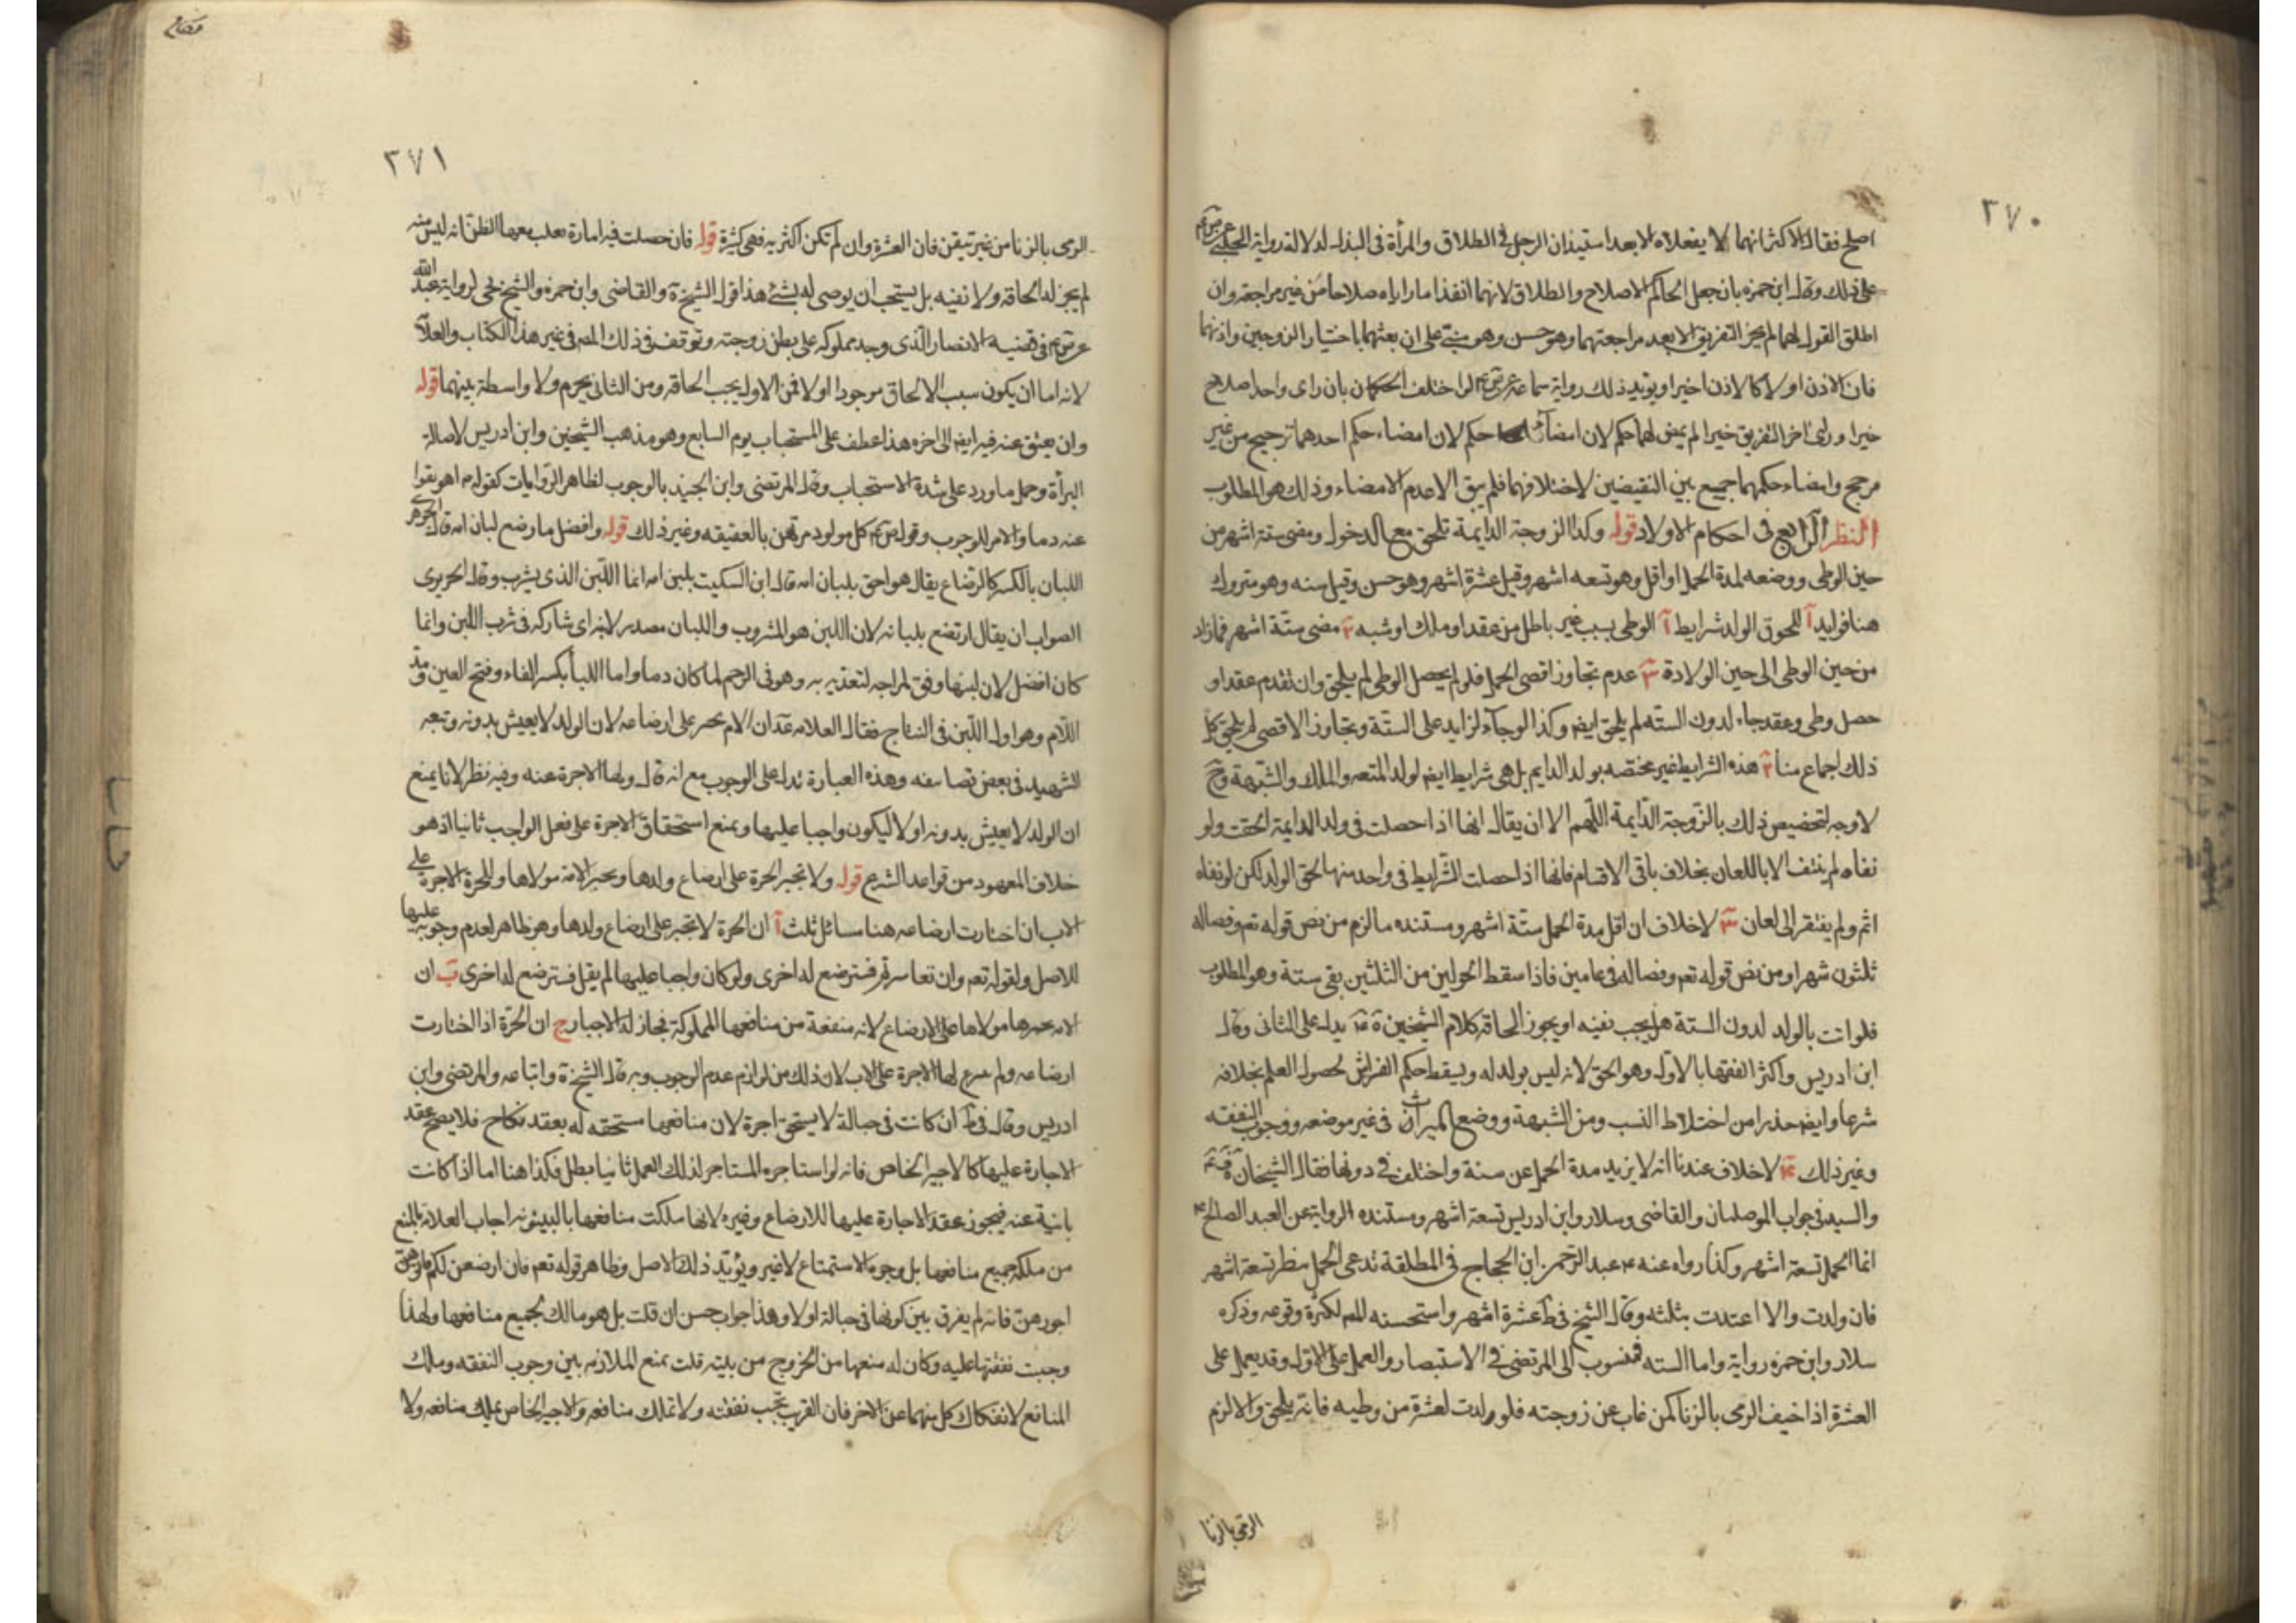 ٢٧٠
اصلح فقال الاكثر انهما لا يفعلاه الا بعد استيذان الرجل في الطلاق والمرأة في البذل لدلالة رواية الحلبي عن ص ع
على ذلك وقال ابن حمزه بان جعل الحاكم الاصلاح والطلاق لانهما انفذا ما راياه صلاحا من غير مراجعة وان
اطلق القول لهما لم يجز التفريق الا بعد مراجعتهما وهو حسن وهو مبني على ان بعثهما باختيار الزوجين واذنهما
فان الاذن اولا كالاذن اخيرا ويؤيد ذلك رواية سماعة عن ص ع لو اختلف الحكمان بان راى واحد اصلاح
خيرا وراى اخر التفريق خيرا لم يمض لهما حكم لان امضاء حكم لان امضاء حكم احدهما ترجيح من غير
مرجح وامضاء حكمهما جميع بين النقيضين لاختلافهما فلم يبق الا عدم الامضاء وذلك هو المطلوب
النظر الرابع في احكام الاولاد قوله وكذا الزوجة الدايمة تلحق مع الدخول ومضى ستة اشهر من
حين الوطى ووضعه لمدة الحمل او اقل وهو تسعه اشهر وقيل عشرة اشهر وهو حسن وقيل سنه وهو متروك
هنا فوايد آ للحوق الولد شرايط آ الوطى بسبب غير باطل من عقد او ملك او شبه ٢ مضى ستة اشهر فمازاد
من حين الوطى الى حين الولادة ٣ عدم تجاوز اقصى الحمل فلو لم يحصل الوطى لم يلحق وان تقدم عقد او
حصل وطى وعقد جاء لدون الستة لم يلحق ايضا وكذا لو جاء لزايد على الستة وتجاوز الاقصى لم يلحق كل
ذلك اجماع منا ٢ هذه الشرايط غير مختصه بولد الدايم بل هى شرايط ايضا لولد المتعه والملك والشبهة وح
لا وجه لتخصيص ذلك بالزوجة الدايمة اللهم الا ان يقال انها اذا حصلت في ولد الدايمة الحقت ولو
نفاه لم ينتف الا باللعان بخلاف باقى الاقسام فانها اذا حصلت الشرايط في واحد منها لحق الولد لكن لو نفاه
اثم ولم يفتقر الى لعان ٣ لا خلاف ان اقل مدة الحمل ستة اشهر ومستنده ما لزم من نص قوله تعم وفصاله
ثلثون شهرا ومن نص قوله تعم وفصاله في عامين فاذا سقط الحولين من الثلثين بقى ستة وهو المطلوب
فلو اتت بالولد لدون الستة هل يجب نفيه او يجوز الحاقه كلام الشيخين يدل على الثانى وقال
ابن ادريس واكثر الفقها بالاول وهو الحق لانه ليس بولد له ويسقط حكم الفراش لحصول العلم بخلافه
شرعا وايضا حذرا من اختلاط النسب ومن الشبهة ووضع الميراث في غير موضعه ووجوب النفقه
وغير ذلك ٤ لا خلاف عندنا انه لا يزيد مدة الحمل عن سنة واختلف في دونها فقال الشيخان
والسيد في جواب الموصليات والقاضى وسلار وابن ادريس تسعة اشهر ومستنده الرواية عن العبد الصالح ع
انما الحمل تسعة اشهر وكذا رواه عنه ع عبد الرحمن ابن الحجاج في المطلقة تدعى الحمل ينظر تسعة اشهر
فان ولدت والا اعتدت بثلثه وقال الشيخ في ط عشرة اشهر واستحسنه المص لكثرة وقوعه وذكره
سلار وابن حمزه رواية واما السنه فمنسوب الى المرتضى في الاستبصار والعمل على الاول وقد يعمل على
العشرة اذا خيف الرمى بالزنا كمن غاب عن زوجته فلو ولدت لعشرة من وطيه فانه يلحق والا لزم
الرمى بالزنا
٢٧١
الرمى بالزنا من غير تيقن فان العشرة وان لم تكن اكثريه فهى كثيرة قوله فان حصلت فيه امارة يغلب معها الظن انه ليس منه
لم يجز له الحاقه ولا نفيه بل يستحب ان يوصى له بشئ هذا قول الشيخ والقاضى وابن حمزه والشيخ لرواية عبد الله
عن ص ع في قضيه الانصار الذى وجد مملوكه على بطن زوجته وتوقف في ذلك المص في غير هذا الكتاب والعلا
لانه اما ان يكون سبب الالحاق موجودا اولا فمن الاول يجب الحاقه ومن الثانى يحرم ولا واسطة بينهما قوله
وان يعتق عنه فيه ايضا الى اخره هذا عطف على المستحبات يوم السابع وهو مذهب الشيخين وابن ادريس لاصالة
البرأة وحمل ما ورد على شدة الاستحباب وقال المرتضى وابن الجنيد بالوجوب لظاهر الروايات كقوله اهريقوا
عنه دما والامر للوجوب وقوله ص ع كل مولود مرتهن بالعقيقه وغير ذلك قوله وافضل ما رضع لبان امه قال الجوهرى
اللبان بالكسر كالرضاع يقال هو احق بلبان امه قال ابن السكيت بلبن امه انما اللبن الذى يشرب وقال الحريرى
الصواب ان يقال ارتضع بلبانه لان اللبن هو المشروب واللبان مصدر لابنه اى شاركه في شرب اللبن وانما
كان افضل لان لبنها وفق لمزاجه لتغذيه به وهو في الرحم لما كان دما واما اللبأ بكسر الفاء وفتح العين
اللام وهو اول اللبن في النتاج فقال العلامه عندان الام تجبر على ارضاعه لان الولد لا يعيش بدونه وتبعه
الشهيد في بعض تصانيفه وهذه العبارة تدل على الوجوب مع انه قال ولها الاجرة عنه وفيه نظر لانا نمنع
ان الولد لا يعيش بدونه اولا ليكون واجبا عليها ونمنع استحقاق الاجرة على فعل الواجب ثانيا اذ هو
خلاف المعهود من قواعد الشرع قوله ولا تجبر الحرة على ارضاع ولدها ويجبر الامة مولاها وللحرة الاجرة على
الاب ان اختارت ارضاعه هنا مسائل ثلث آ ان الحرة لا تجبر على ارضاع ولدها وهو ظاهر لعدم وجوبه عليها
للاصل ولقوله تعم وان تعاسرتم فسترضع له اخرى ولو كان واجبا عليها لم يقل فسترضع له اخرى ب ان
الامه يجبرها مولاها على الارضاع لانه منفعة من منافعها المملوكة فجاز له الاجبار ج ان الحرة اذا اختارت
ارضاعه ولم لها الاجرة على الاب لان ذلك من لوازم عدم الوجوب وبه قال الشيخ واتباعه والمرتضى وابن
ادريس وقال في ط ان كانت في حبالة لا يستحق اجرة لان منافعها مستحقه له بعقد نكاح فلا يصح عقد
الاجارة عليها كالاجير الخاص فانه لو استاجره المستاجر لذلك العمل ثانيا بطل فكذا هنا اما اذا كانت
باينة عنه فيجوز عقد الاجارة عليها للارضاع وغيره لانها ملكت منافعها بالبينونه اجاب العلامه بالمنع
من ملكه جميع منافعها بل وجوه الاستمتاع لا غير ويؤيد ذلك الاصل وظاهر قوله تعم فان ارضعن لكم فاتوهن
اجورهن فانه لم يفرق بين كونها في حبالة اولا وهذا جواب حسن ان قلت بل هو مالك لجميع منافعها ولهذا
وجبت نفقتها عليه وكان له منعها من الخروج من بيته قلت نمنع الملازمه بين وجوب النفقه وملك
المنافع لانفكاك كل منهما عن الاخر فان القريب تجب نفقته ولا تملك منافعه والاجير الخاص يملك منافعه ولا